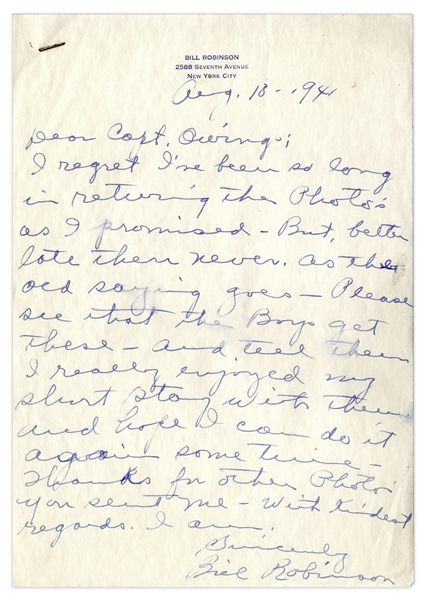 BILL ROBINSON
2588 SEVENTH AVENUE
NEW YORK CITY
Aug. 18 - 1941
Dear Capt. Owings;
I regret I've been so long
in returing the Photo's
as I promised - But, better
late then never. as the
old saying goes - Please
see that the Boys get
these - and teel them
I really enjoyed my
short stay with them
and hope I can do it
again some time -
Thanks for other Photo's
you sent me - With kindest
regards. I am,
Sincerely
Bill Robinson